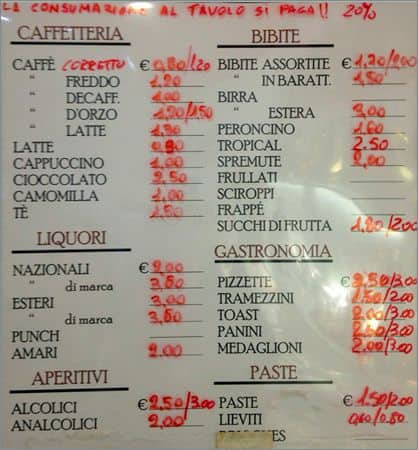 LA CONSUMAZIONE AL TAVOLO SI PAGA!! 20%
CAFFETTERIA
CAFFÈ CORRETTO € 0,80/1,20
" FREDDO 1,20
" DECAFF. 1,00
" D'ORZO 1,20/1,50
" LATTE 1,30
LATTE 0,80
CAPPUCCINO 1,00
CIOCCOLATO 2,50
CAMOMILLA 1,00
TÈ 1,50
LIQUORI
NAZIONALI € 2,00
" di marca 3,50
ESTERI 3,00
" di marca 3,50
PUNCH
AMARI 2,00
APERITIVI
ALCOLICI € 2,50/3,00
ANALCOLICI 2,00
BIBITE
BIBITE ASSORTITE € 1,20/2,00
" IN BARATT. 1,50
BIRRA
" ESTERA 3,00
PERONCINO 1,60
TROPICAL 2.50
SPREMUTE 2,00
FRULLATI
SCIROPPI
FRAPPÉ
SUCCHI DI FRUTTA 1,20/2,00
GASTRONOMIA
PIZZETTE € 2,50/3,00
TRAMEZZINI 1,50/2,00
TOAST 2,00/3,00
PANINI 2,50/3,00
MEDAGLIONI 2,00/3,00
PASTE
PASTE € 1,50/2,00
LIEVITI 0,60/0,80